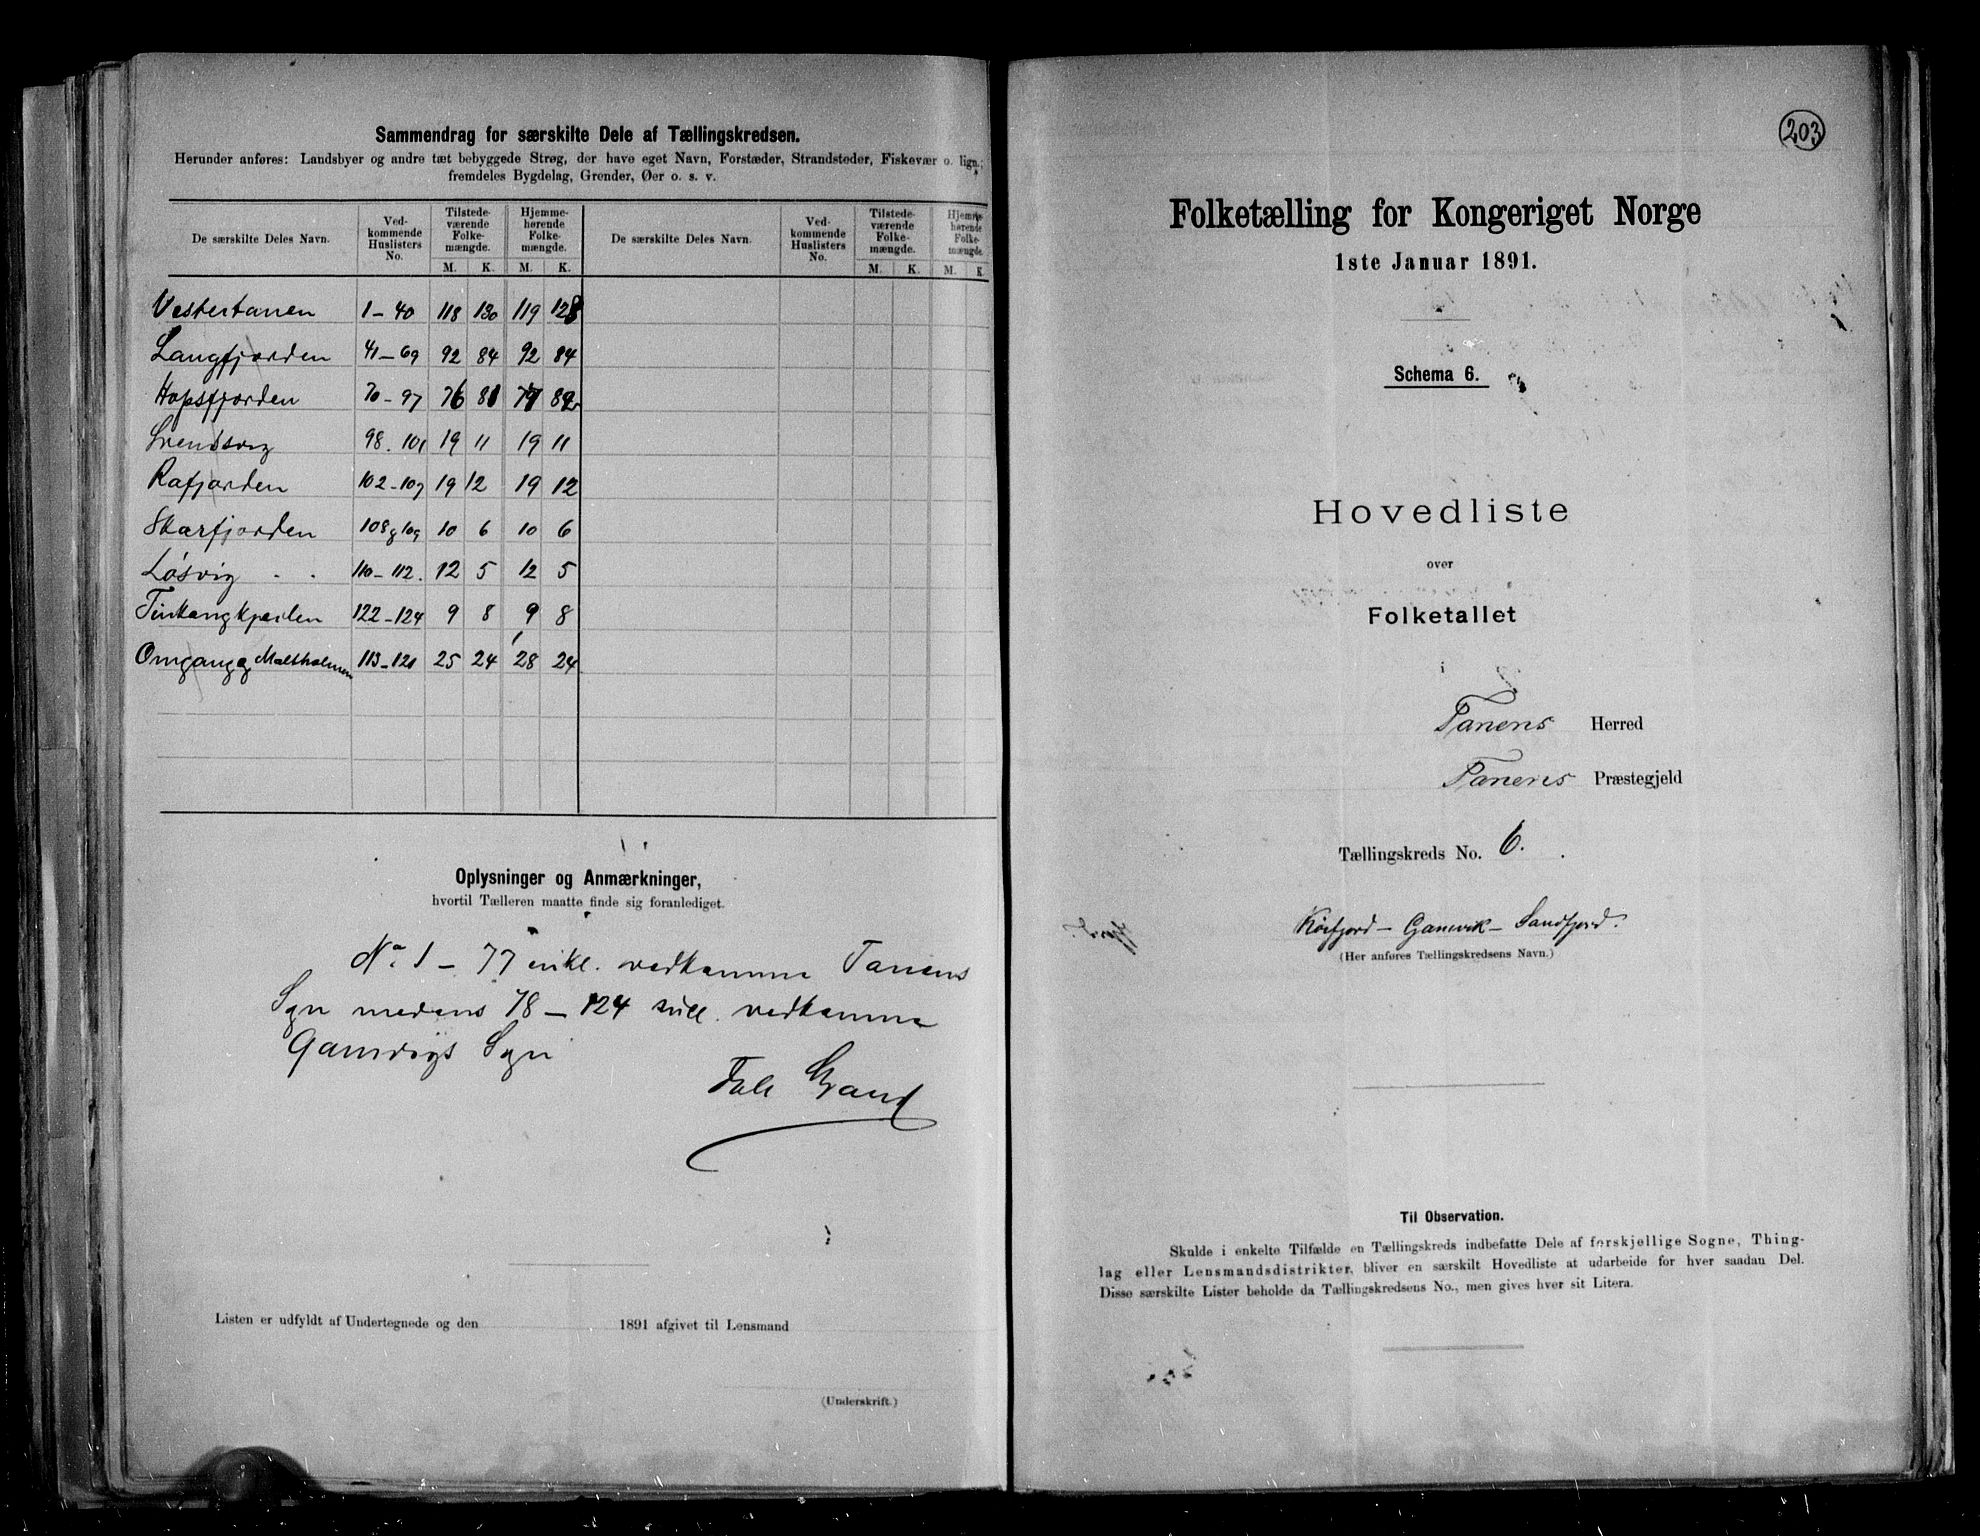 Sammendrag for særskilte Dele af Tællingskredsen.
Herunder anføres: Landsbyer og andre tæt bebyggede Strøg, der have eget Navn, Forstæder, Strandsteder, Fiskevær o. lign.;
fremdeles Bygdelag, Grender, Øer o. s. v.
De særskilte Deles Navn. Vedkommende Huslisters No. Tilstedeværende Folkemængde. M. K. Hjemmehørende Folkemængde. M. K.
De særskilte Deles Navn. Vedkommende Huslisters No. Tilstedeværende Folkemængde. M. K. Hjemmehørende Folkemængde. M. K.
Vestertanen 1-40 118 130 119 128
Langfjorden 41-69 92 84 92 84
Hopsfjorden 70-97 76 81
98.101 19 11 19 11
Rafjorden 102-107 19 12 19 12
Skarfjorden 108 g 109 10 6 10 6
Løsvig 110-112. 12 5 12 5
122-124 9 8 9 8
Omgang og Maltholmen 113-121 25 24 28 24
Oplysninger og Anmærkninger,
hvortil Tælleren maatte finde sig foranlediget.
No 1 - 77 inkl. vedkomme Tanens
Sgn medens 78 - 124 vedkomme
Gamvigs Sgn
Listen er udfyldt af Undertegnede og den 1891 afgivet til Lensmand
(Underskrift.)
203
Folketælling for Kongeriget Norge
1ste Januar 1891.
Schema 6.
Hovedliste
over
Folketallet
i
Tanens Herred
Tanens Præstegjeld
Tællingskreds No. 6.
Koifjord - Gamvik - Sandfjord.
(Her anføres Tællingskredsens Navn.)
Til Observation.
Skulde i enkelte Tilfælde en Tællingskreds indbefatte Dele af forskjellige Sogne, Thing-
lag eller Lensmandsdistrikter, bliver en særskilt Hovedliste at udarbeide for hver saadan Del.
Disse særskilte Lister beholde da Tællingskredsens No., men gives hver sit Litera.